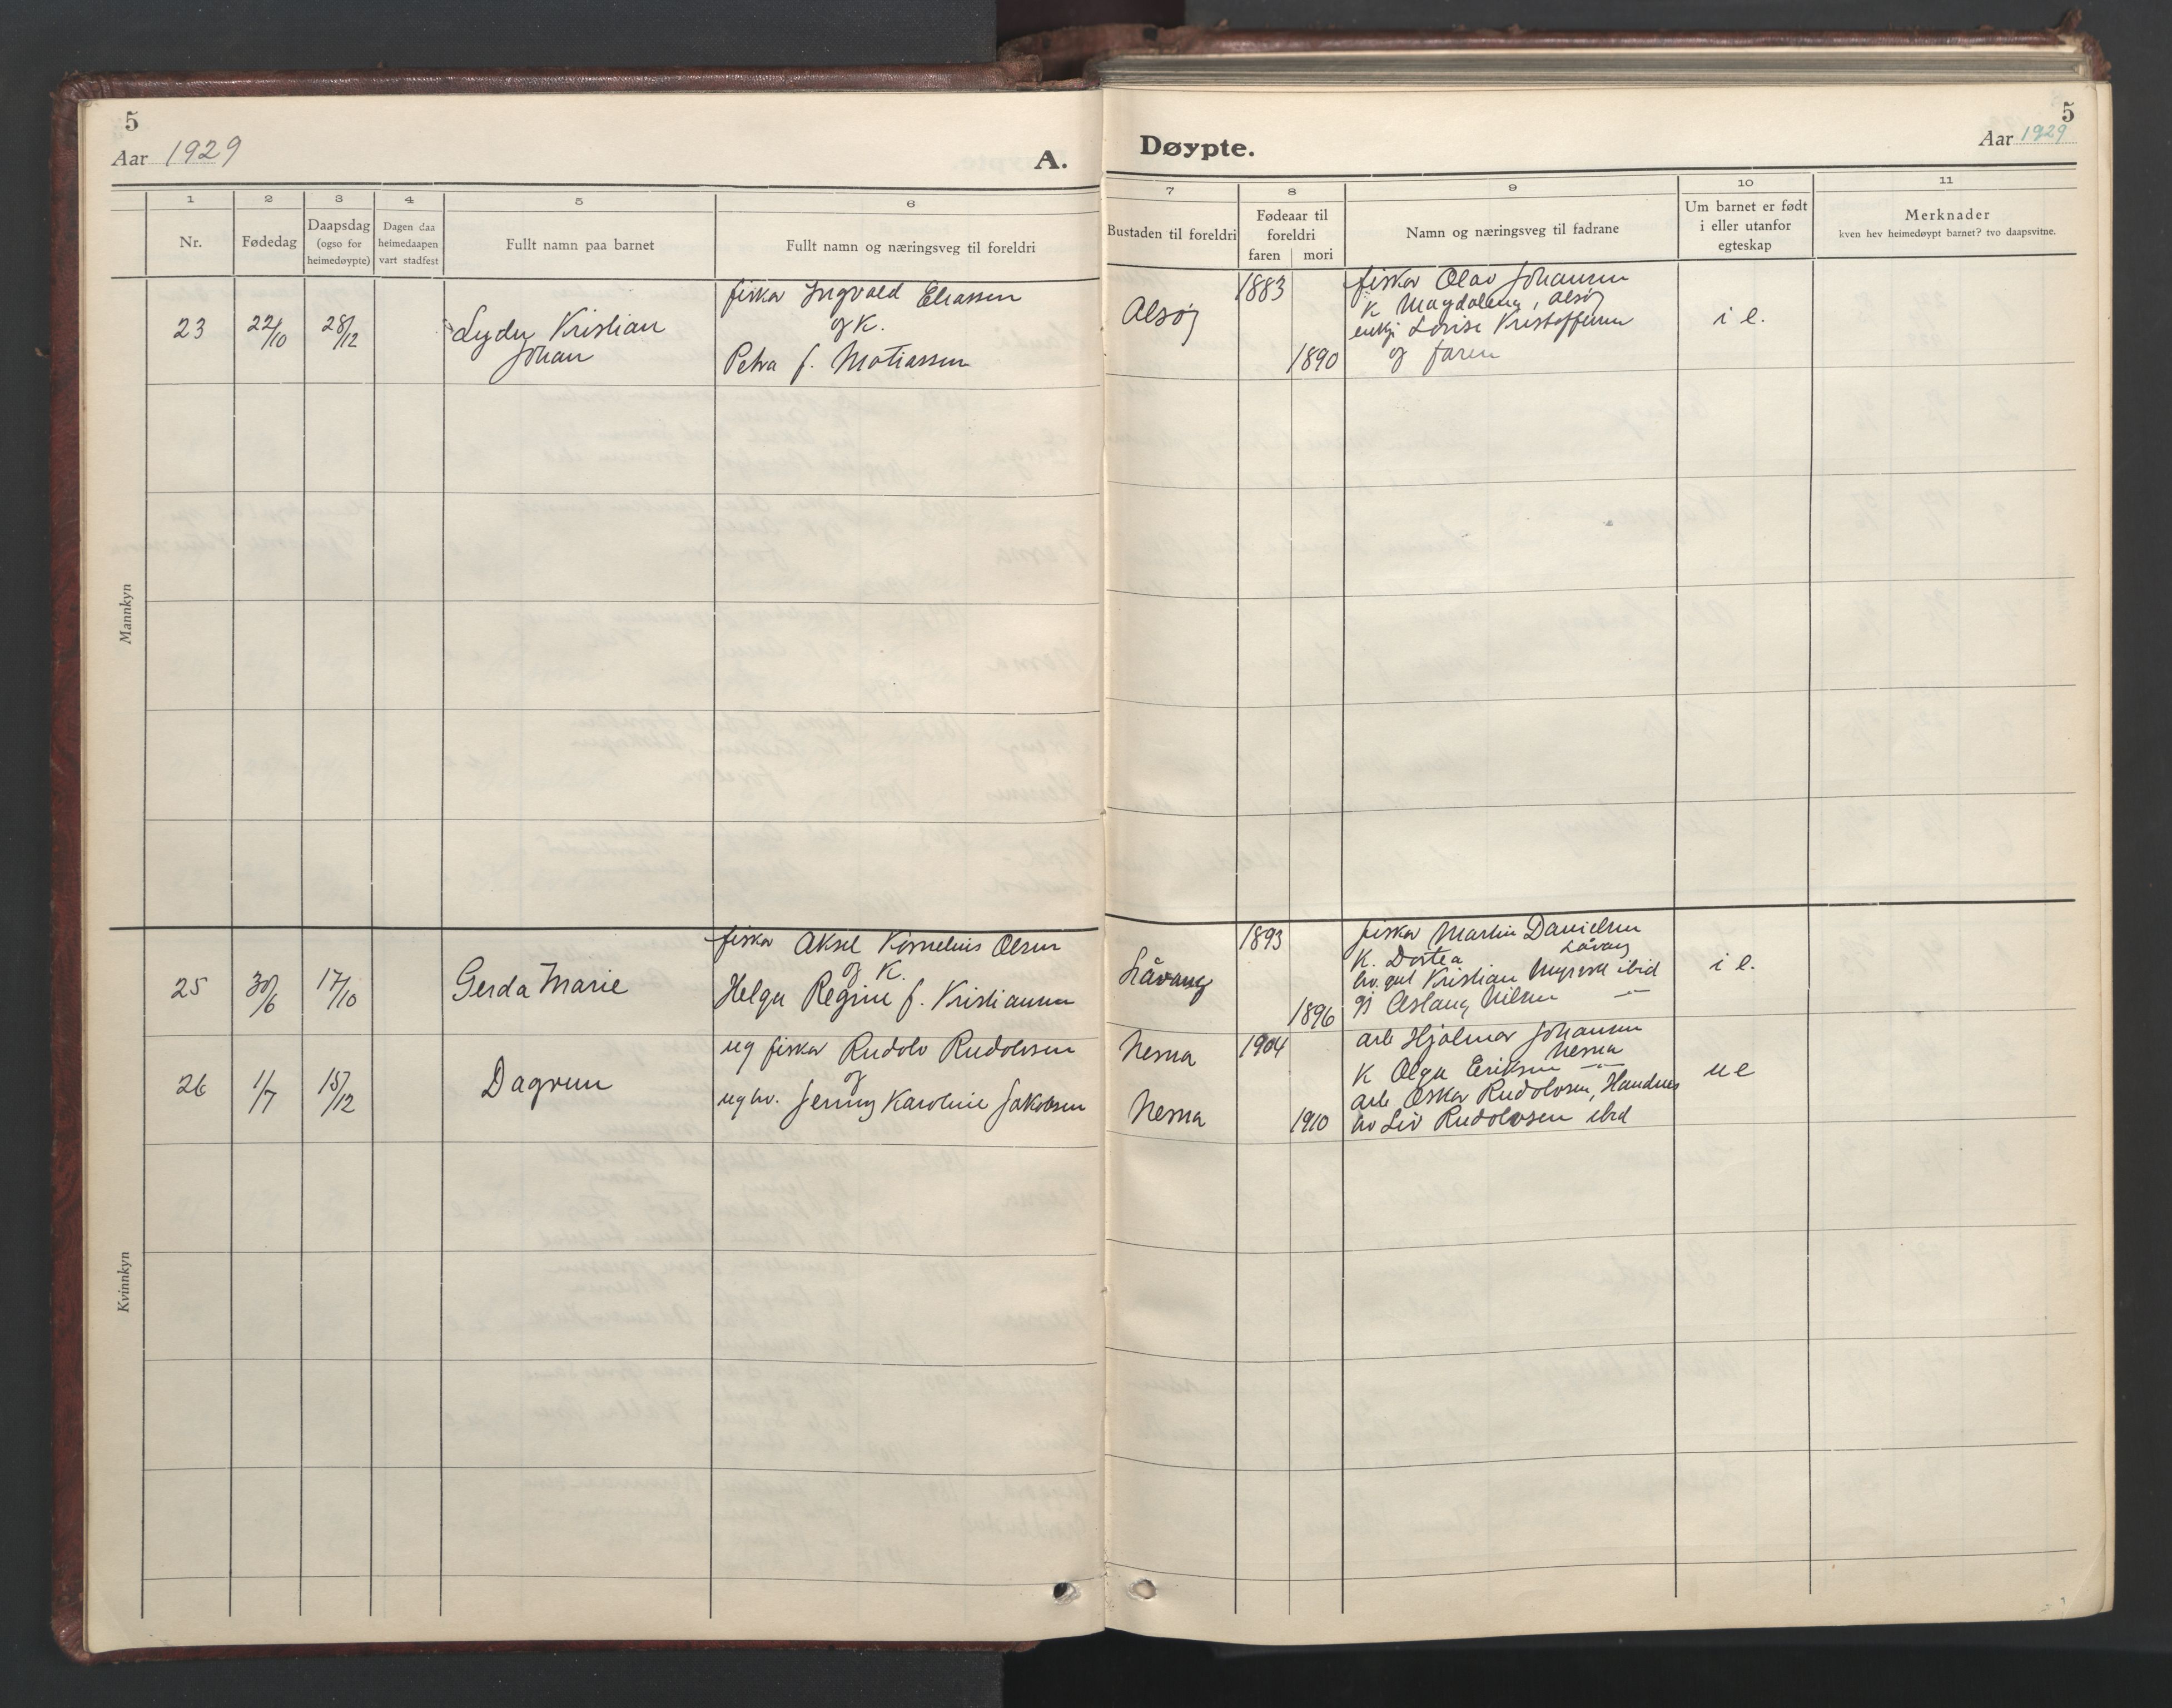 5
Aar 1929
A.
Døypte.
5
Aar 1929
1
2
3
4
5
6
7
8
9
10
11
Nr.
Fødedag
Daapsdag
(ogso for
heimedøypte)
Dagen daa
heimedaapen
vart stadfest
Fullt namn paa barnet
Fullt namn og næringsveg til foreldri
Bustaden til foreldri
Fødeaar til
foreldri
faren mori
Namn og næringsveg til fadrane
Um barnet er født
i eller utanfor
egteskap
Merknader
kven hev heimedøypt barnet? tvo daapsvitne.
Mannkyn
23
22/10
28/12
Kristian
Johan
fisker Ingvald Eliassen
og K.
Petra f. Matiassen
Alsøy
1883
1890
fisker Olav Johansen
K Magdalena, Alsøy
Lovise Kristoffersen
og faren
i e.
Kvinnkyn
25
30/6
17/10
Gerda Marie
fisker Aksel Kornelius Olsen
og K.
Helga Regine f. Kristiansen
Låvang
1893
1896
fisker Martin Danielsen
K. Dortea Låvang
Kristian ibid
pi Aslaug Nilsen —"—
i e.
26
1/7
15/12
Dagrun
ug fisker Rudolv Rudolvsen
og
ug hv. Jenny Karoline Jakobsen
Nesna
Nesna
1904
1910
arb Hjalmar Johansen
Nesna
K Olga Eriksen —"—
arb Oskar Rudolvsen, Handnes
hv Liv Rudolvsen ibid
u e